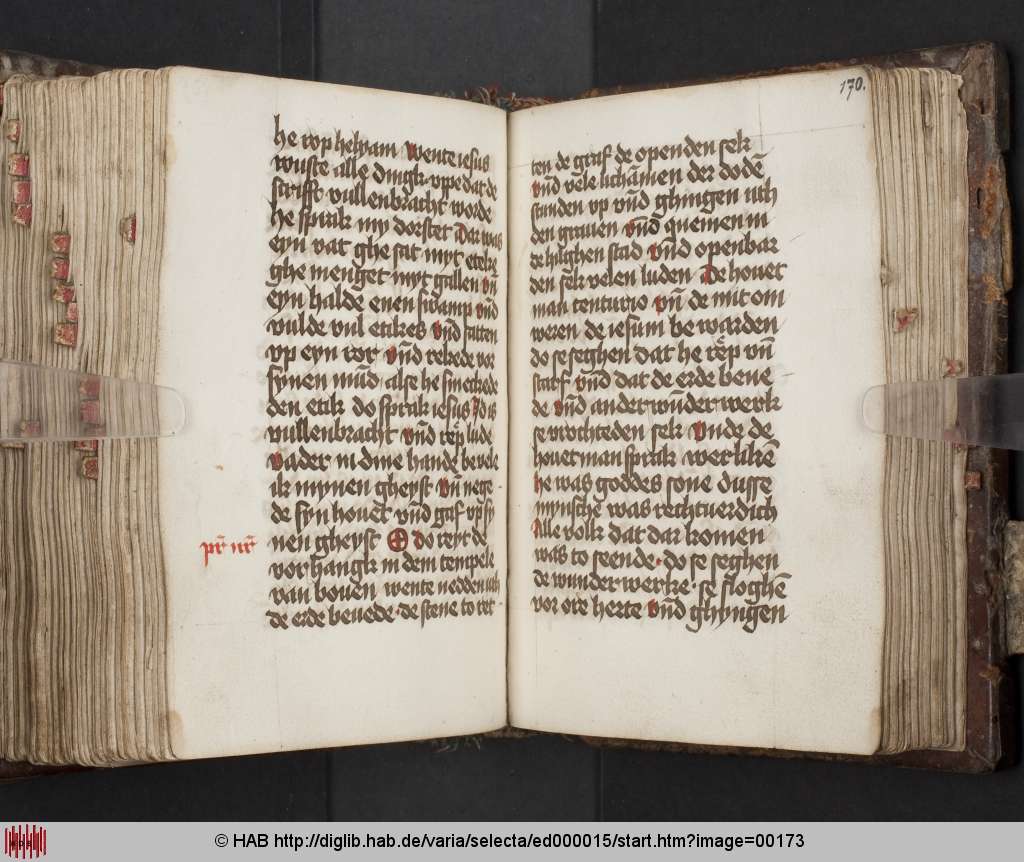 he rop helyam wente iesus
wuste alle dingk vppe dat de
scrifft vullenbracht worde
he sprak my dorstet Dar was
eyn vat ghe sat myt etike
ghe menget myt gallen vn̄
eyn halde enen swamp vnd
vulde vul etikes vnd setten
vp eyn ror vnd rekede vor
synen mūd alse he smekede
den etik do sprak iesus Id is
vullenbracht vnd rep lude
vader in dine hande bevele
ik mynen gheyst vn̄ nege
de syn houet vnd gaf vp sy
nen gheyst do reyt de
pr̄ nr̄
vorhangk in dem tempele
van bouen wente nedden
de erde beuede de stene to ret
170.
ten de graf de open den sek
vnd vele lichāmen der dodē
stunden vp vnd ghingen uth
den grauen vnd quemen in
de hilghen stad vnd openbar
den sek velen luden De houet
man centurio vn̄ de mit om
weren de iesum be warden
do se seghen dat he rep vn̄
starf vnd dat de erde beue
de vnd ander wūder werk
se vrochteden sek vnde de
houet man sprak werlikē
he was goddes sone dusse
mynsche was rechtuerdich
Alle volk dat dar komen
was to seende do se seghen
de wunder werke se sloghē
vor ore herte vnd ghyngen
© HAB http://diglib.hab.de/varia/selecta/ed000015/start.htm?image=00173